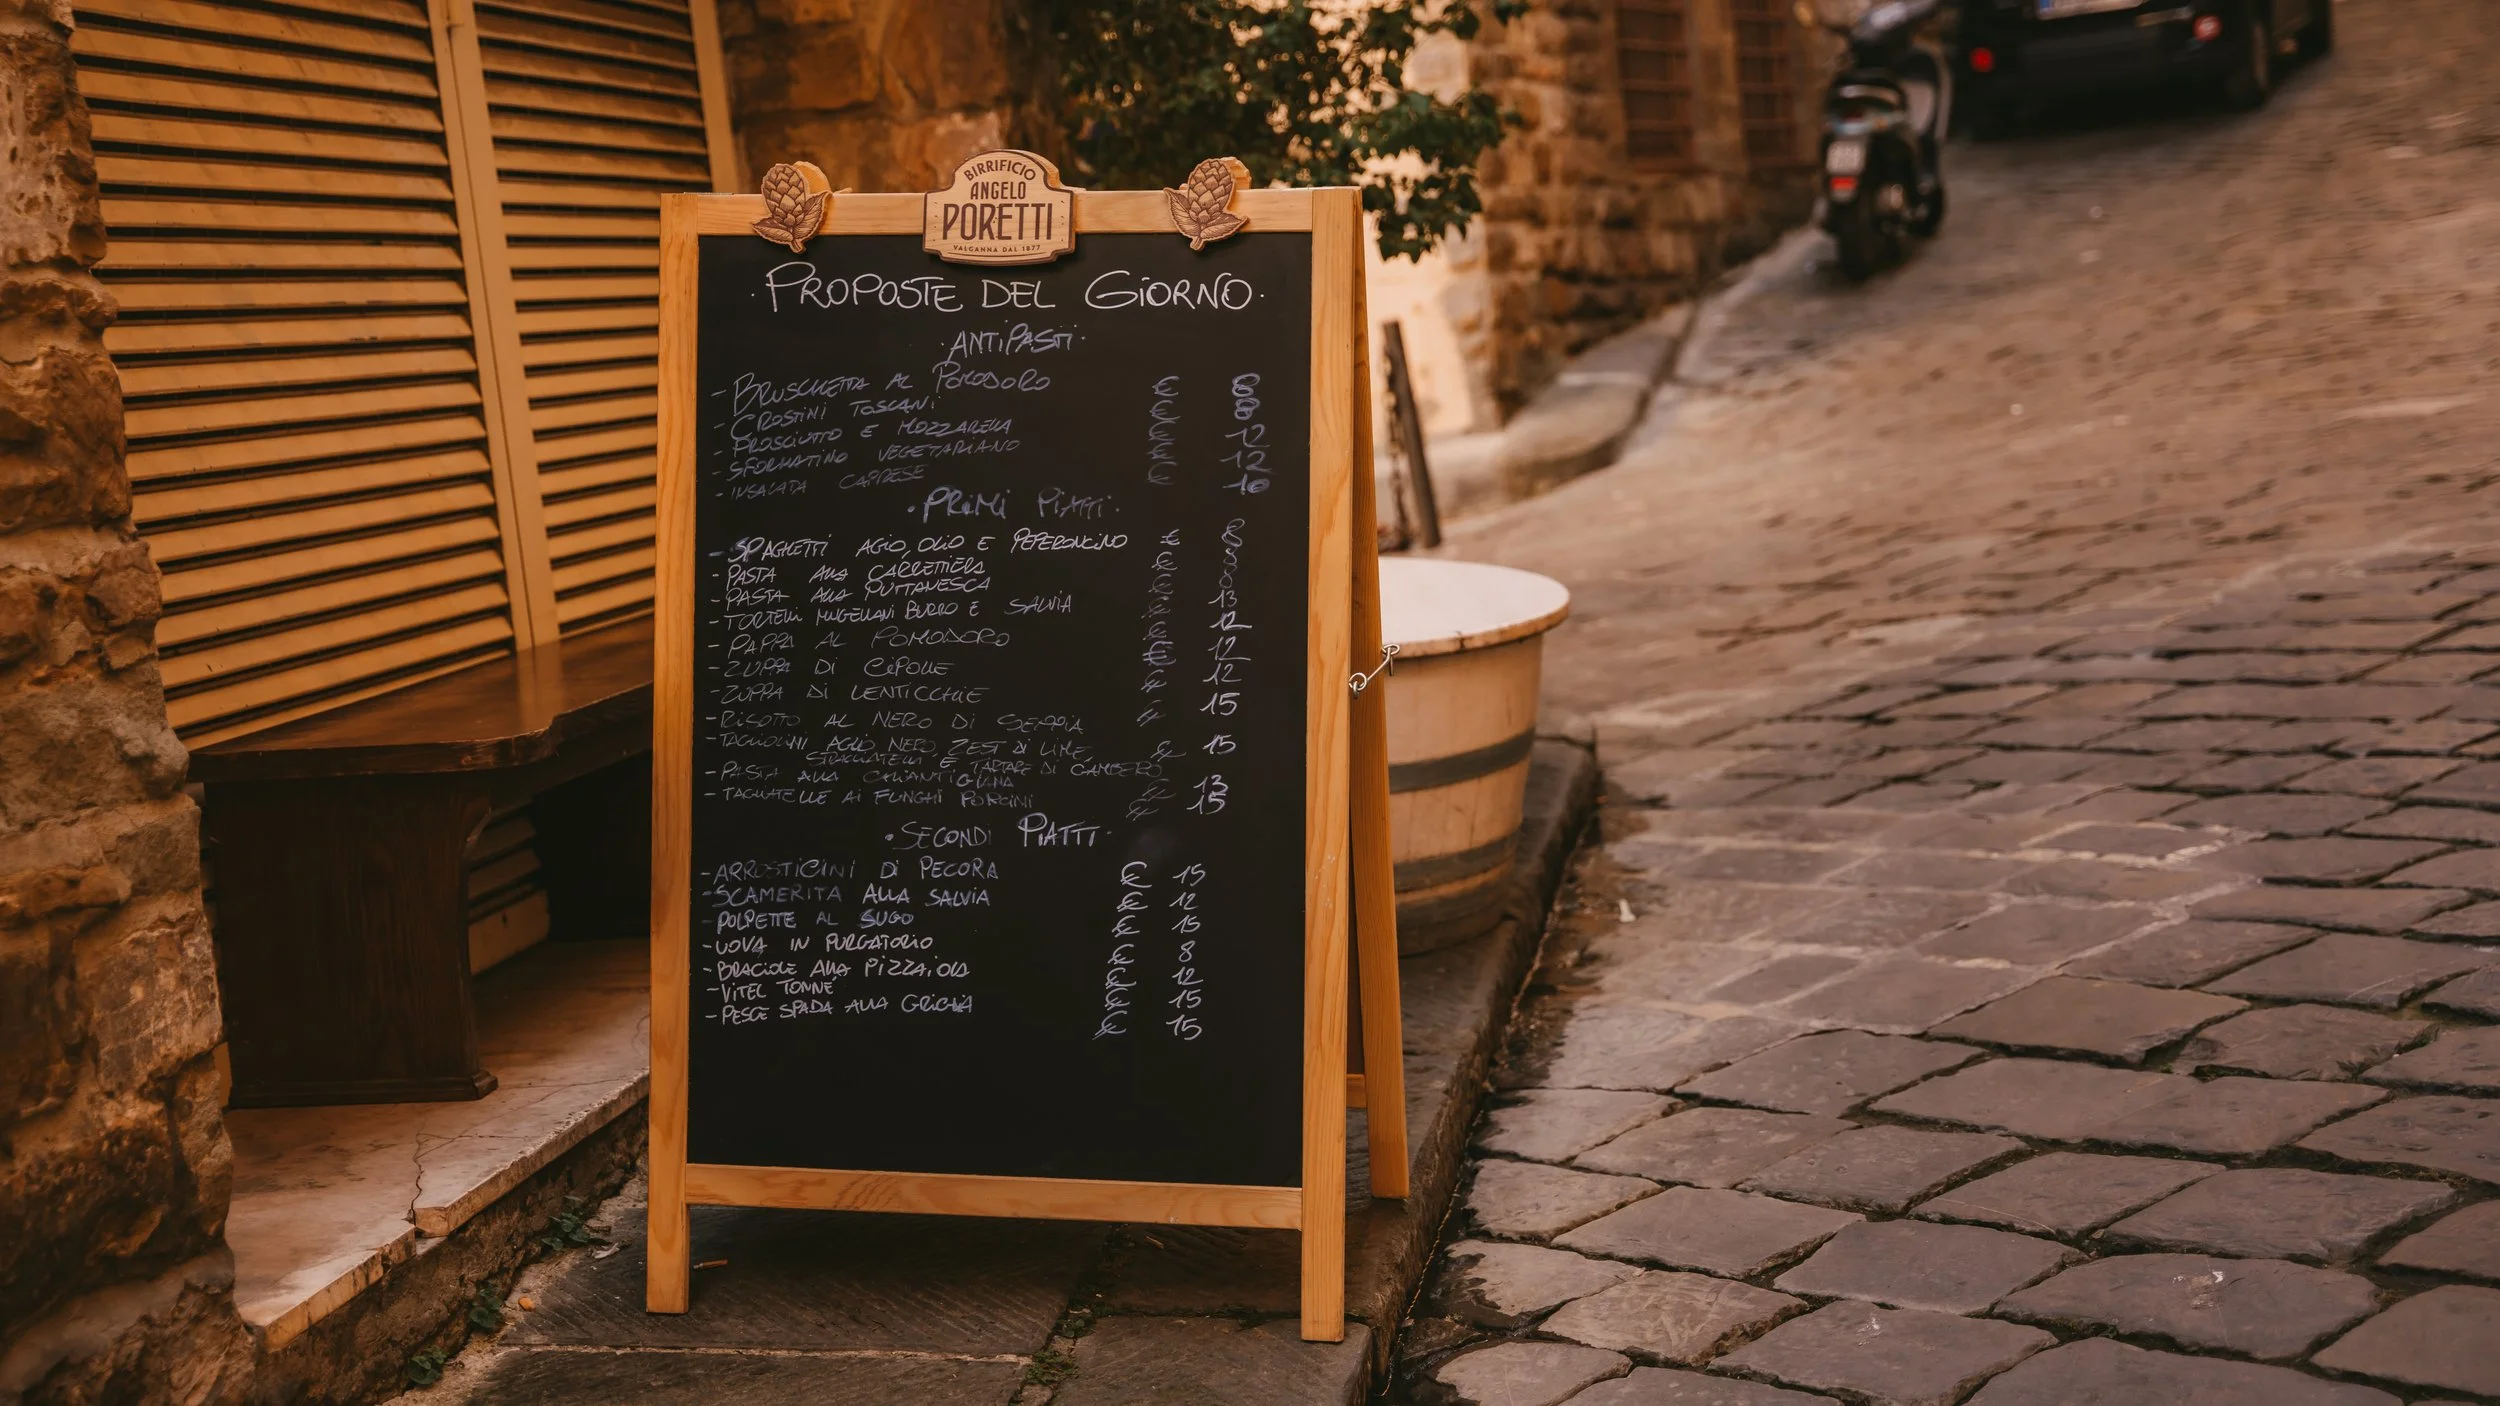 BIRRIFICIO
ANGELO
PORETTI
VALGANNA DAL 1877
· PROPOSTE DEL GIORNO ·
· ANTIPASTI ·
- BRUSCHETTA AL POMODORO € 8
- CROSTINI TOSCANI € 8
- PROSCIUTTO E MOZZARELLA € 12
- SFORMATINO VEGETARIANO € 12
- INSALATA CAPRESE € 10
· PRIMI PIATTI ·
- SPAGHETTI AGIO, OLIO E PEPERONCINO € 8
- PASTA ALLA CARRETTIERA €
- PASTA ALLA PUTTANESCA €
- TORTELLI MUGELLANI BURRO E SALVIA € 13
- PAPPA AL POMODORO € 12
- ZUPPA DI CIPOLLE € 12
- ZUPPA DI LENTICCHIE € 12
- RISOTTO AL NERO DI SEPPIA € 15
- TAGLIOLINI AGLIO NERO, ZEST DI LIME, € 15
STRACCIATELLA E TARTARE DI GAMBERO
- PASTA ALLA CHIANTIGIANA € 13
- TAGLIATELLE AI FUNGHI PORCINI € 15
· SECONDI PIATTI ·
- ARROSTICINI DI PECORA € 15
- SCAMERITA ALLA SALVIA € 12
- POLPETTE AL SUGO € 15
- UOVA IN PURGATORIO € 8
- BRACIOLE ALLA PIZZAIOLA € 12
- VITEL TONNÉ € 15
- PESCE SPADA ALLA GRIGLIA € 15